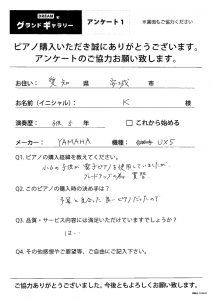 グランドギャラリー
アンケート1
※裏面もご協力ください
ピアノ購入いただき誠にありがとうございます。
アンケートのご協力お願い致します。
お住い: 愛知 県 安城 市
お名前(イニシャル): K 様
演奏歴: 年 □ これから始める
メーカー: YAMAHA 機種: UX5
Q1. ピアノの購入経緯を教えてください。
小6の子供が電子ピアノを使用していましたが、
グレードアップの為
Q2. このピアノの購入時の決め手は?
予算と見合った良いピアノだったので
Q3. 品質・サービス内容には満足いただけていますでしょうか?
はい
Q4. その他感想やご要望等、ご自由にご記入下さい。
ご協力ありがとうございました。今後ともよろしくお願い致します。